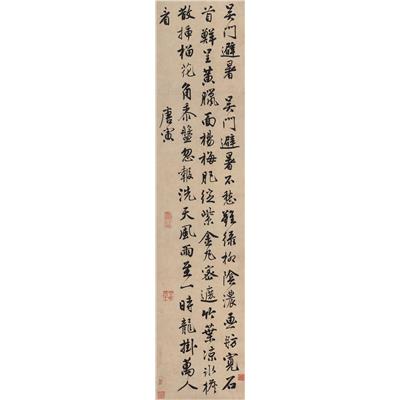 吴门避暑　吴门避暑不愁难绿柳阴浓画舫宽石
首鲜呈黄腊面杨梅肥绽紫金丸密遮竹叶凉冰檐
散插榴花角黍盘忽报洗天风雨至一时龙挂万人
看
唐寅